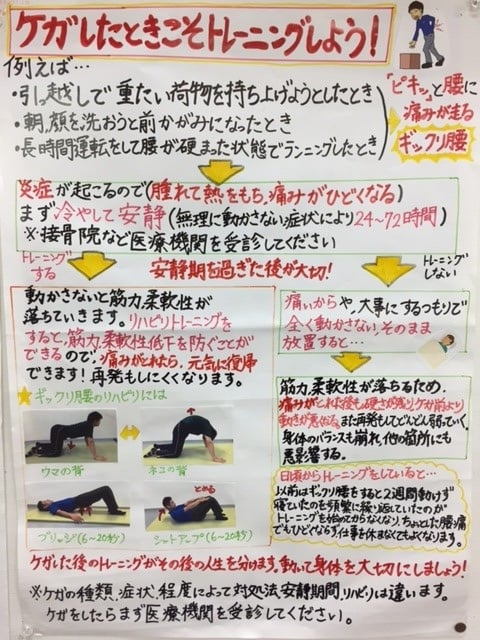 ケガしたときこそトレーニングしよう!
例えば…
・引っ越しで重たい荷物を持ち上げようとしたとき
・朝、顔を洗おうと前かがみになったとき
・長時間運転をして腰が硬まった状態でランニングしたとき
「ピキッ」と腰に
痛みが走る
ギックリ腰
炎症が起こるので(腫れて熱をもち、痛みがひどくなる)
まず冷やして安静(無理に動かさない症状により24~72時間)
※接骨院など医療機関を受診してください
トレーニング
する
安静期を過ぎた後が大切!
トレーニング
しない
動かさないと筋力、柔軟性が
落ちていきます。リハビリトレーニングを
すると、筋力、柔軟性低下を防ぐことが
できるので、痛みがとれたら、元気に復帰
できます!再発もしにくくなります。
ギックリ腰のリハビリには
ウマの背
ネコの背
ブリッジ(6~20秒)
とめる
シットアップ(6~20秒)
痛いからや、大事にするつもりで
全く動かさない、そのまま
放置すると…
筋力、柔軟性が落ちるため、
痛みがとれた後も硬さが残り、ケガ前より
動きが悪くなる。また再発もしてどんどん弱っていく。
身体のバランスも崩れ、他の箇所にも
悪影響する。
日頃からトレーニングをしていると…
以前はギックリ腰をすると2週間動けず
寝ていたのを頻繁に繰り返していたのが
トレーニングを始めてからなくなり、ちょっとした腰痛
でもひどくならず仕事を休まなくてもよくなります。
ケガした後のトレーニングがその後の人生を分けます。動いて身体を大切にしましょう!
※ケガの種類、症状、程度によって対処法、安静期間、リハビリは違います。
ケガをしたらまず医療機関を受診してください。